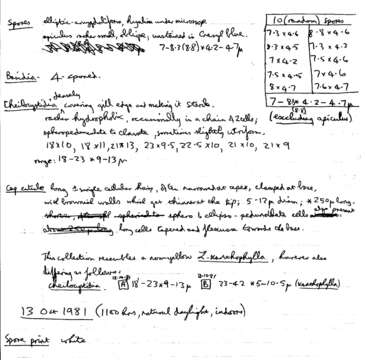 Spores elliptic-amygdaliform, hyaline under microscope
apiculus rather small, oblique, unstained in Cresyl blue.
7-8·3(8·8)×4·2-4·7μ
10 (random) spores
7·3×4·6 8·3×4·6
8·3×4·5 7·3×4·3
7×4·2 7·5×4·6
7·5×4·5 7×4·6
8×4·7 7·6×4·7
7-8·3×4·2-4·7μ
(8·8)
(excluding apiculus)
Basidia- 4-spored.
densely
Cheilocystidia covering gill edge and making it sterile.
rather hydrophilic, occasionally in a chain of 2 cells;
sphaeropedunculate to clavate, sometimes slightly utriform.
18×10, 18×11, 21×13, 23×9·5, 22·5×10, 21×10, 21×9
range: 18-23×9-13μ
Cap cuticle long & single cellular hairs, often narrowed at apex, clamped at base,
with brownish walls which get thicker at the tip; 5-17μ diam; ×250μ long.
sphero & ellipso-pedunculate cells also present
long cells tapered and flexuous towards the base.
This collection resembles a nonyellow L. xanthophylla, however also
differing as follows:
cheilocystidia: A 18-23×9-13μ B 23-42×5-10·5μ (xanthophylla)
13 Oct 1981 (1100 hrs, natural daylight, indoors)
Spore print white